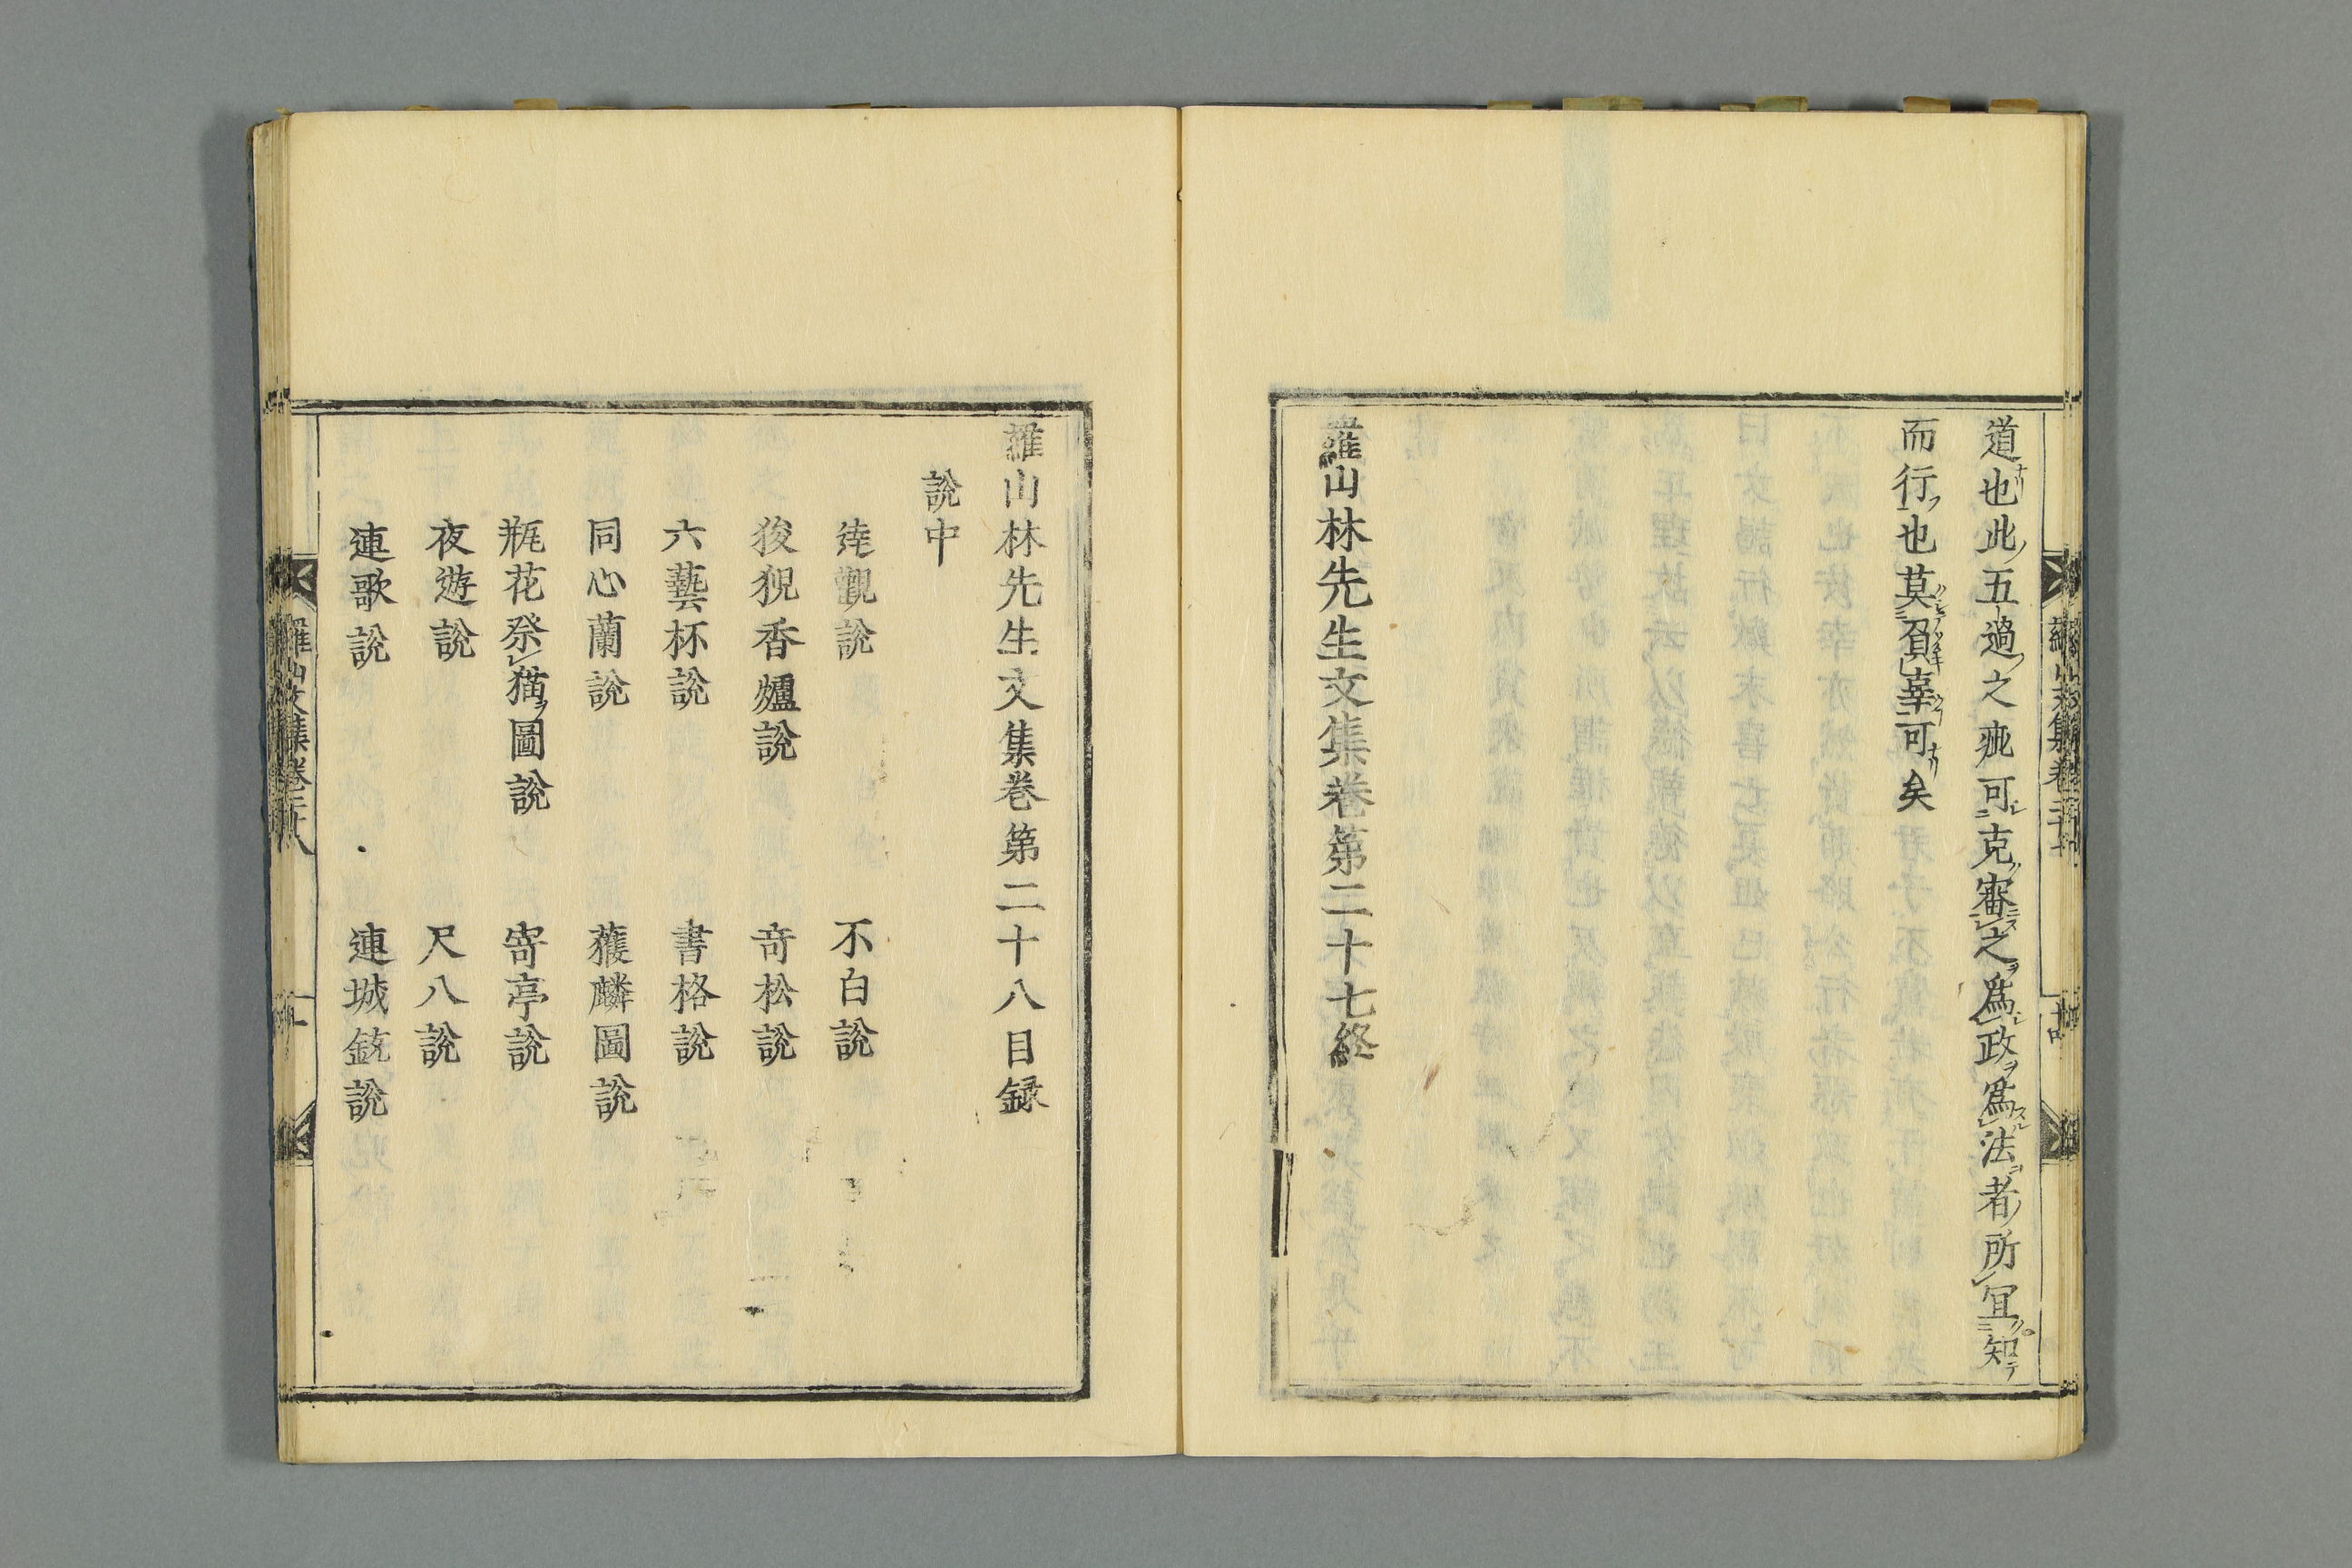 道也此五過之疵可克審之爲政爲法者所宜知
而行也莫負辜可矣
羅山林先生文集卷第二十七終
羅山林先生文集卷第二十八目録
說中
逹觀說
不白說
狻猊香爐說
奇松說
六藝杯說
書格說
同心蘭說
獲麟圖說
瓶花祭猫圖說
寄亭說
夜遊說
尺八說
連歌說
連城銃說
羅山文集卷二十八